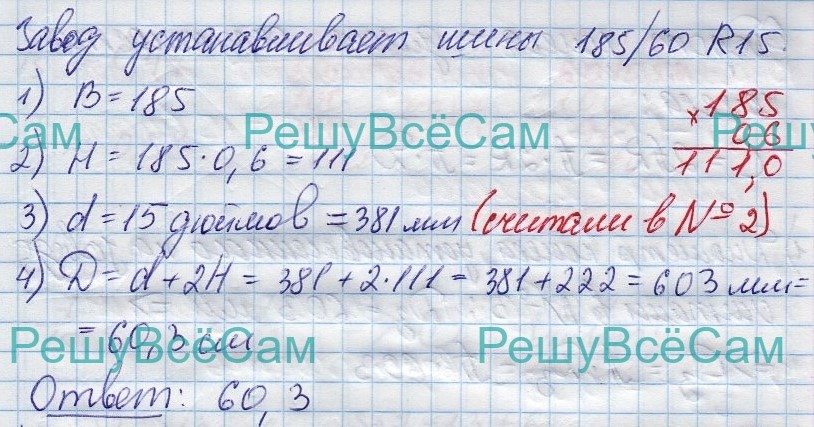 Завод устанавливает шины 185/60 R15.
1) B = 185
2) H = 185·0,6 = 111
×185
0 6
111,0
3) d = 15 дюймов = 381 мм (считали в № 2)
4) D = d + 2H = 381 + 2·111 = 381 + 222 = 603 мм =
= 60,3 см
Ответ: 60,3
РешуВсёСам
РешуВсёСам
РешуВсёСам
РешуВсёСам
РешуВсёСам